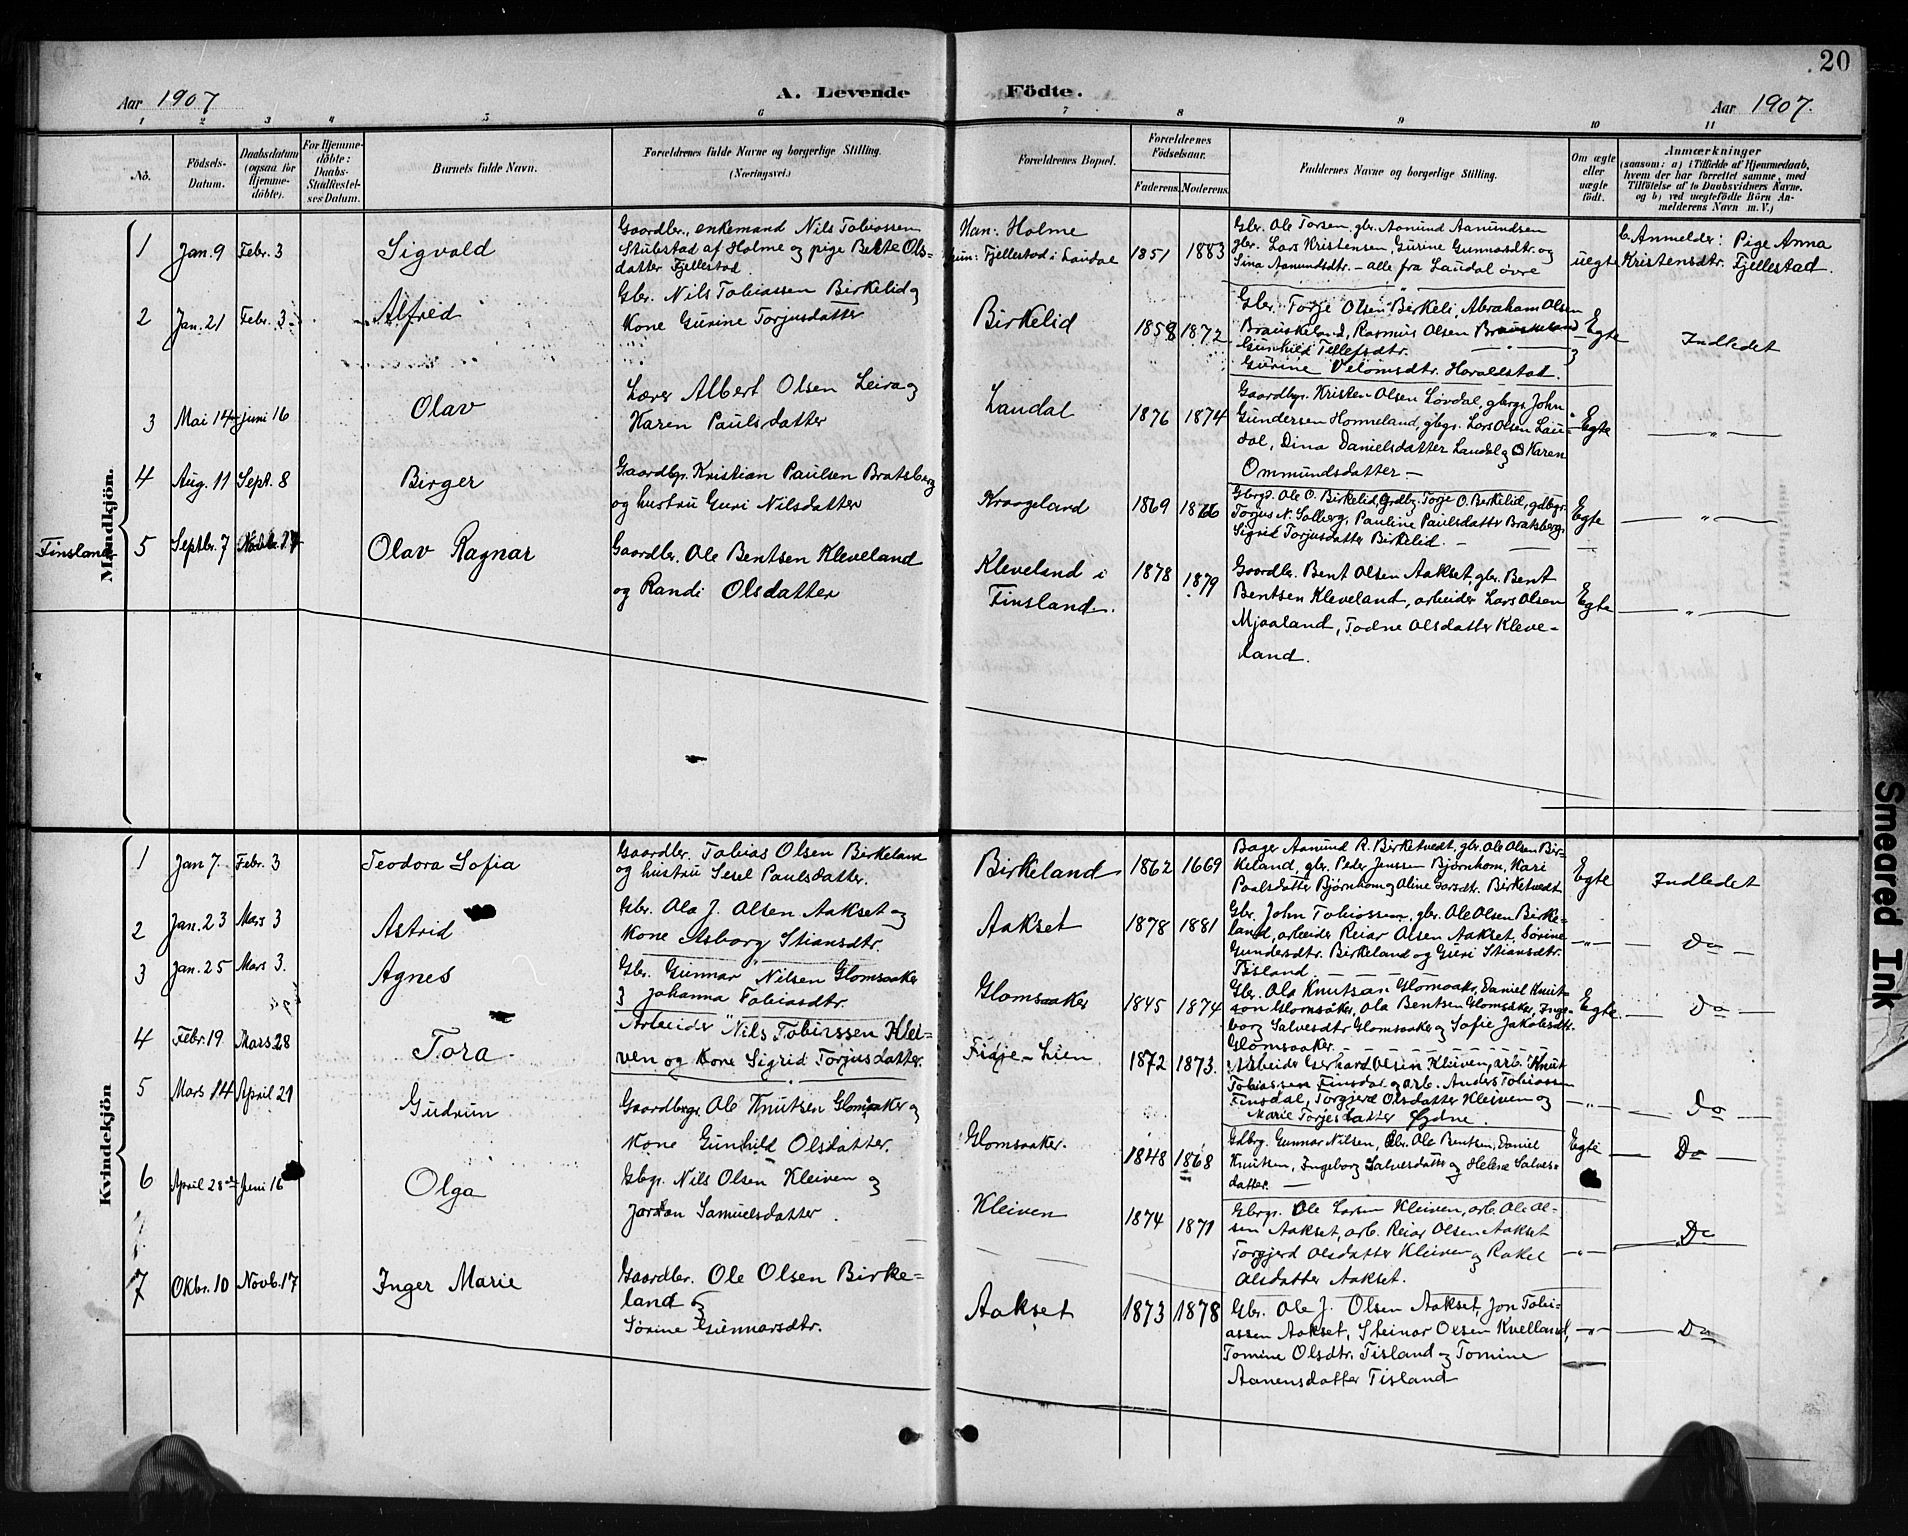 20
Aar 1907
A. Levende
Födte.
Aar 1907.
1 2 3 4 5 6 7 8 9 10 11
No.
Födsels-Datum.
Daabsdatum (ogsaa for Hjemme-döbte).
For Hjemme-döbte: Daabs-Stadfæstel-ses Datum.
Barnets fulde Navn.
Forældrenes fulde Navne og borgerlige Stilling. (Næringsvei.)
Forældrenes Bopæl.
Forældrenes Födselsaar.
Faderens. Moderens.
Faddernes Navne og borgerlige Stilling.
Om ægte eller uægte födt.
Anmærkninger
(saasom: a) i Tilfælde af Hjemmedaab,
hvem der har forrettet samme, med
Tilföielse af to Daabsvidners Navne,
og b) ved uægtefödte Börn An-
melderens Navn m. V.)
Mandkjön.
1 Jan. 9 Febr. 3 Sigvald
Gaardbr., enkemand Nils Tobiassen
Stubstad af Holme og pige Berte Ols-
datter Fjellestad.
Han: Holme
hun: Fjellestad i Laudal
1851 1883
Gbr. Ole Torsen, gbr. Aanund Aanundsen
gbr. Lars Kristensen, Gurine Gunnarsdtr. og
Sina Aanundsdtr. – alle fra Laudal övre
uegte
b. Anmelder: Pige Anna
Kristensdtr. Fjellestad.
2 Jan. 21 Febr. 3 Alfred
Gbr. Nils Tobiassen Birkelid og
Kone Gurine Torjusdatter
Birkelid
1858 1872
Gbr. Torje Olsen Birkeli, Abraham Olsen
Brauskeland, Rasmus Olsen Brauskeland
Gunhild Tellefsdtr.
Gurine Velomsdtr. Haraldstad.
Egte
Indledet
3 Mai 14 juni 16 Olav
Lærer Albert Olsen Leira og
Karen Paulsdatter
Laudal
1876 1874
Gaardbgr. Kristen Olsen Lövdal, gbrgr. John
Gundersen Hommeland, gbgr. Lars Olsen Lau-
dal, Dina Danielsdatter Laudal og Karen
Ommundsdatter –
Egte
— „ —
4 Aug. 11 Sept. 8 Birger
Gaardbgr. Kristian Paulsen Bratsberg
og hustru Guri Nilsdatter
Kraageland
1869
Gbrgr. Ole O. Birkelid, Grdbg. Torje O. Birkelid, gdbgr.
Torjus N. Solberg, Pauline Paulsdatter Bratsberg,
Sigrid Torjusdatter Birkelid. –
Egte
— „ —
Finsland
5 Septbr. 7 Olav Ragnar
Gaardbr. Ole Bentsen Kleveland
og Randi Olsdatter
Kleveland i
Finsland.
1878 1879
Gaardbr. Bent Olsen Aakset, gbr. Bent
Bentsen Kleveland, arbeider Lars Olsen
Mjaaland, Todne Olsdatter Kleve-
land.
Egte
— „ —
Kvindekjön
1 Jan 7. Febr. 3 Teodora Sofia
Gaardbr. Tobias Olsen Birkeland
og hustru Sesel Paulsdatter.
Birkeland
1862 1669
Bager Aamund R. Birketvedt, gbr. Ole Olsen Bir-
keland, gbr. Peder Jenssen Bjørnhom, Kari
Paalsdatter Bjørnhom og Aline Larsdtr. Birketvedt
Egte
Indledet
2 Jan. 23 Mars 3 Astrid
Gbr. Ola J. Olsen Aakset og
Kone Asborg Stiansdtr.
Aakset
1878 1881
Gbr. John Tobiassen, gbr. Ole Olsen Birke-
land, arbeider Reiar Olsen Aakset, Sørine
Gundersdtr. Birkeland og Guri Stiansdtr.
Tisland
— „ —
Do
3 Jan. 25 Mars 3. Agnes
Gbr. Gunnar Nilsen Glomsaaker
Johanna Tobiasdtr.
Glomsaaker
1845 1874
Gbr. Ola Knutsan Glomsaaker, Daniel Knut-
son Glomsåker, Ola Bentsen Glomsåker, Inge-
borg Salvesdtr Glomsaaker og Sofie Jakobsdtr.
Glomsaaker.
Egte
Do
4 Febr. 19 Mars 28 Tora
Arbeider Nils Tobiassen Klei-
ven og Kone Sigrid Torjusdatter.
Fidje-Lien
1872 1873.
Arbeider Gerhard Olsen Kleiven, arb. Knut
Tobiassen Finsdal og arb. Anders Tobiassen
Finsdal, Torgjerd Olsdatter Kleiven og
Marie Torjesdatter Øydne.
— „ —
Do
5 Mars 14 April 21 Gudrun
Gaardbrgr. Ole Knutsen Glomsaaker og
Kone Gunhild Olsdatter.
Glomsaaker.
1848 1868
Gdbrg. Gunnar Nilsen, Gbr. Ole Bentsen, Daniel
Knutsen, Ingeborg Salvesdatter og Helene Salves-
datter. —
Egte
Do
6 April 28 Juni 16 Olga
Gbgr. Nils Olsen Kleiven og
Jordan Samuelsdatter.
Kleiven
1874 1871
Gbrgr. Ole Larsen Kleiven, arb. Ole Ol-
sen Aakset, arb. Reiar Olsen Aakset
Torgjerd Olsdatter Kleiven og Rakel
Olsdatter Aakset.
— „ —
Do
7 Oktbr. 10 Novb. 17 Inger Marie
Gaardbr. Ole Olsen Birke-
land og
Sörine Gunnarsdtr.
Aakset
1873 1878
Gbr. Ole J. Olsen Aakset, Jon Tobi-
assen Aakset, Steinar Olsen Kvelland,
Tomine Olsdtr. Tisland og Tomine
Aanensdatter Tisland
— „ —
Do
Smeared Ink